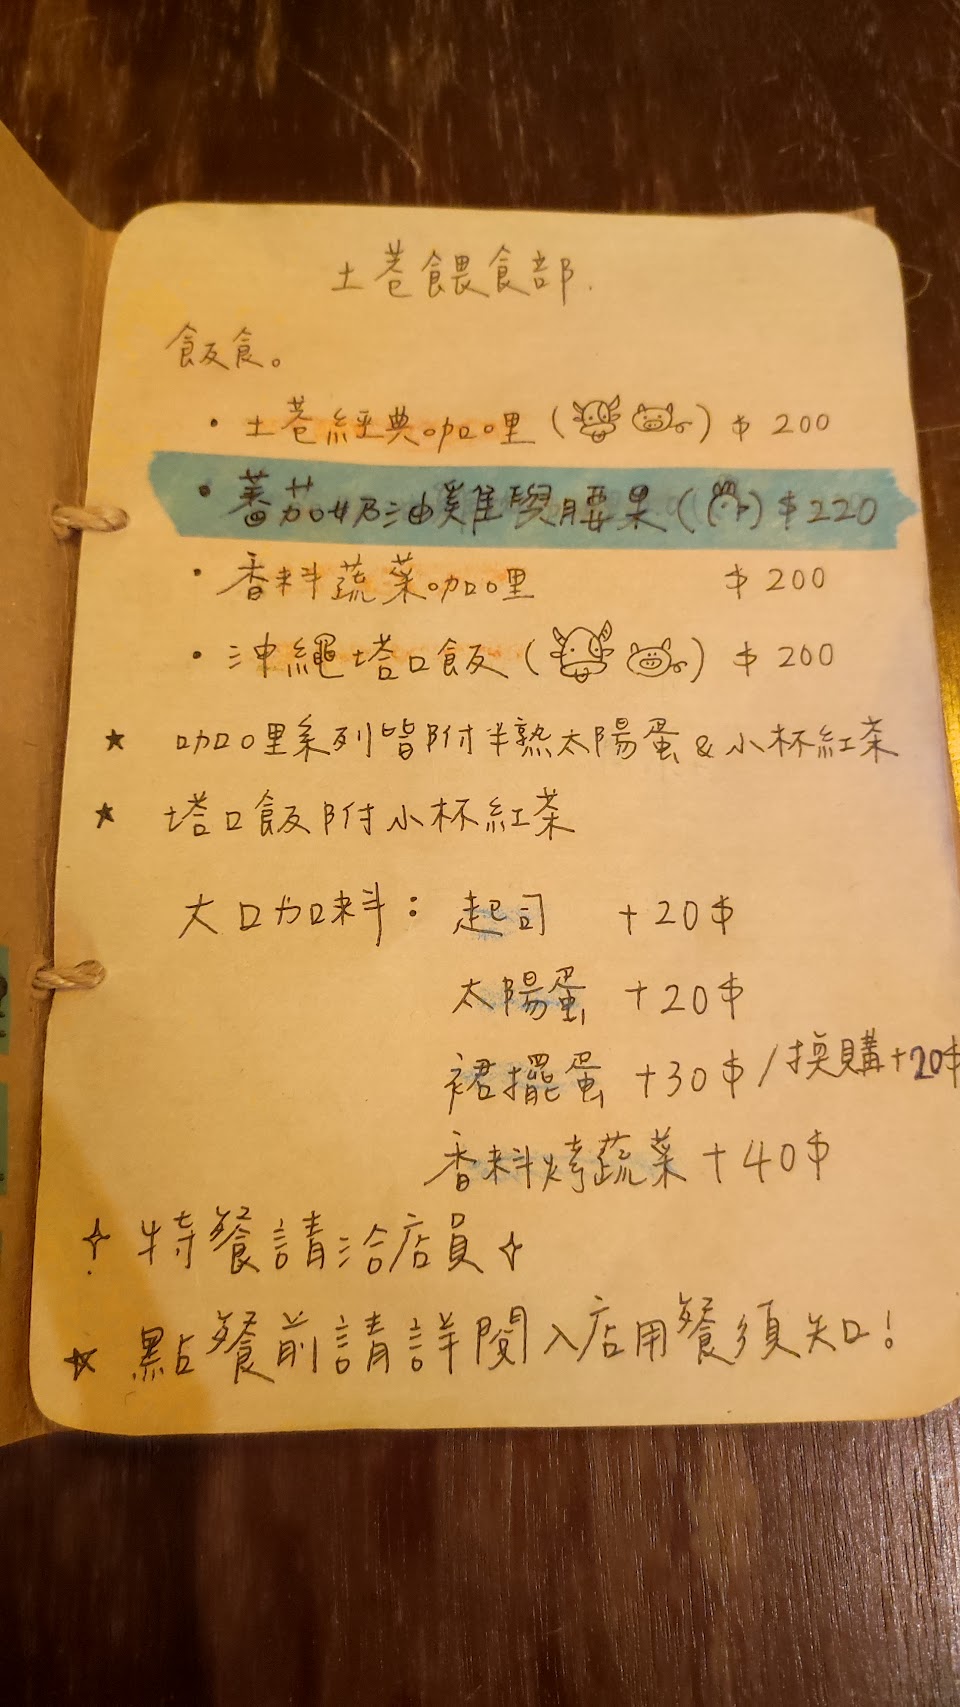 土巷餵食部.
飯食。
・土巷經典咖哩 ( ) $200
・蕃茄奶油雞與腰果 ( ) $220
・香料蔬菜咖哩 $200
・沖繩塔口飯 ( ) $200
★ 咖哩系列皆附半熟太陽蛋 & 小杯紅茶
★ 塔口飯附小杯紅茶
大口加料: 起司 +20$
太陽蛋 +20$
裙擺蛋 +30$ / 換購+20$
香料烤蔬菜 +40$
✧ 特餐請洽店員 ✧
☆ 點餐前請詳閱入店用餐須知!